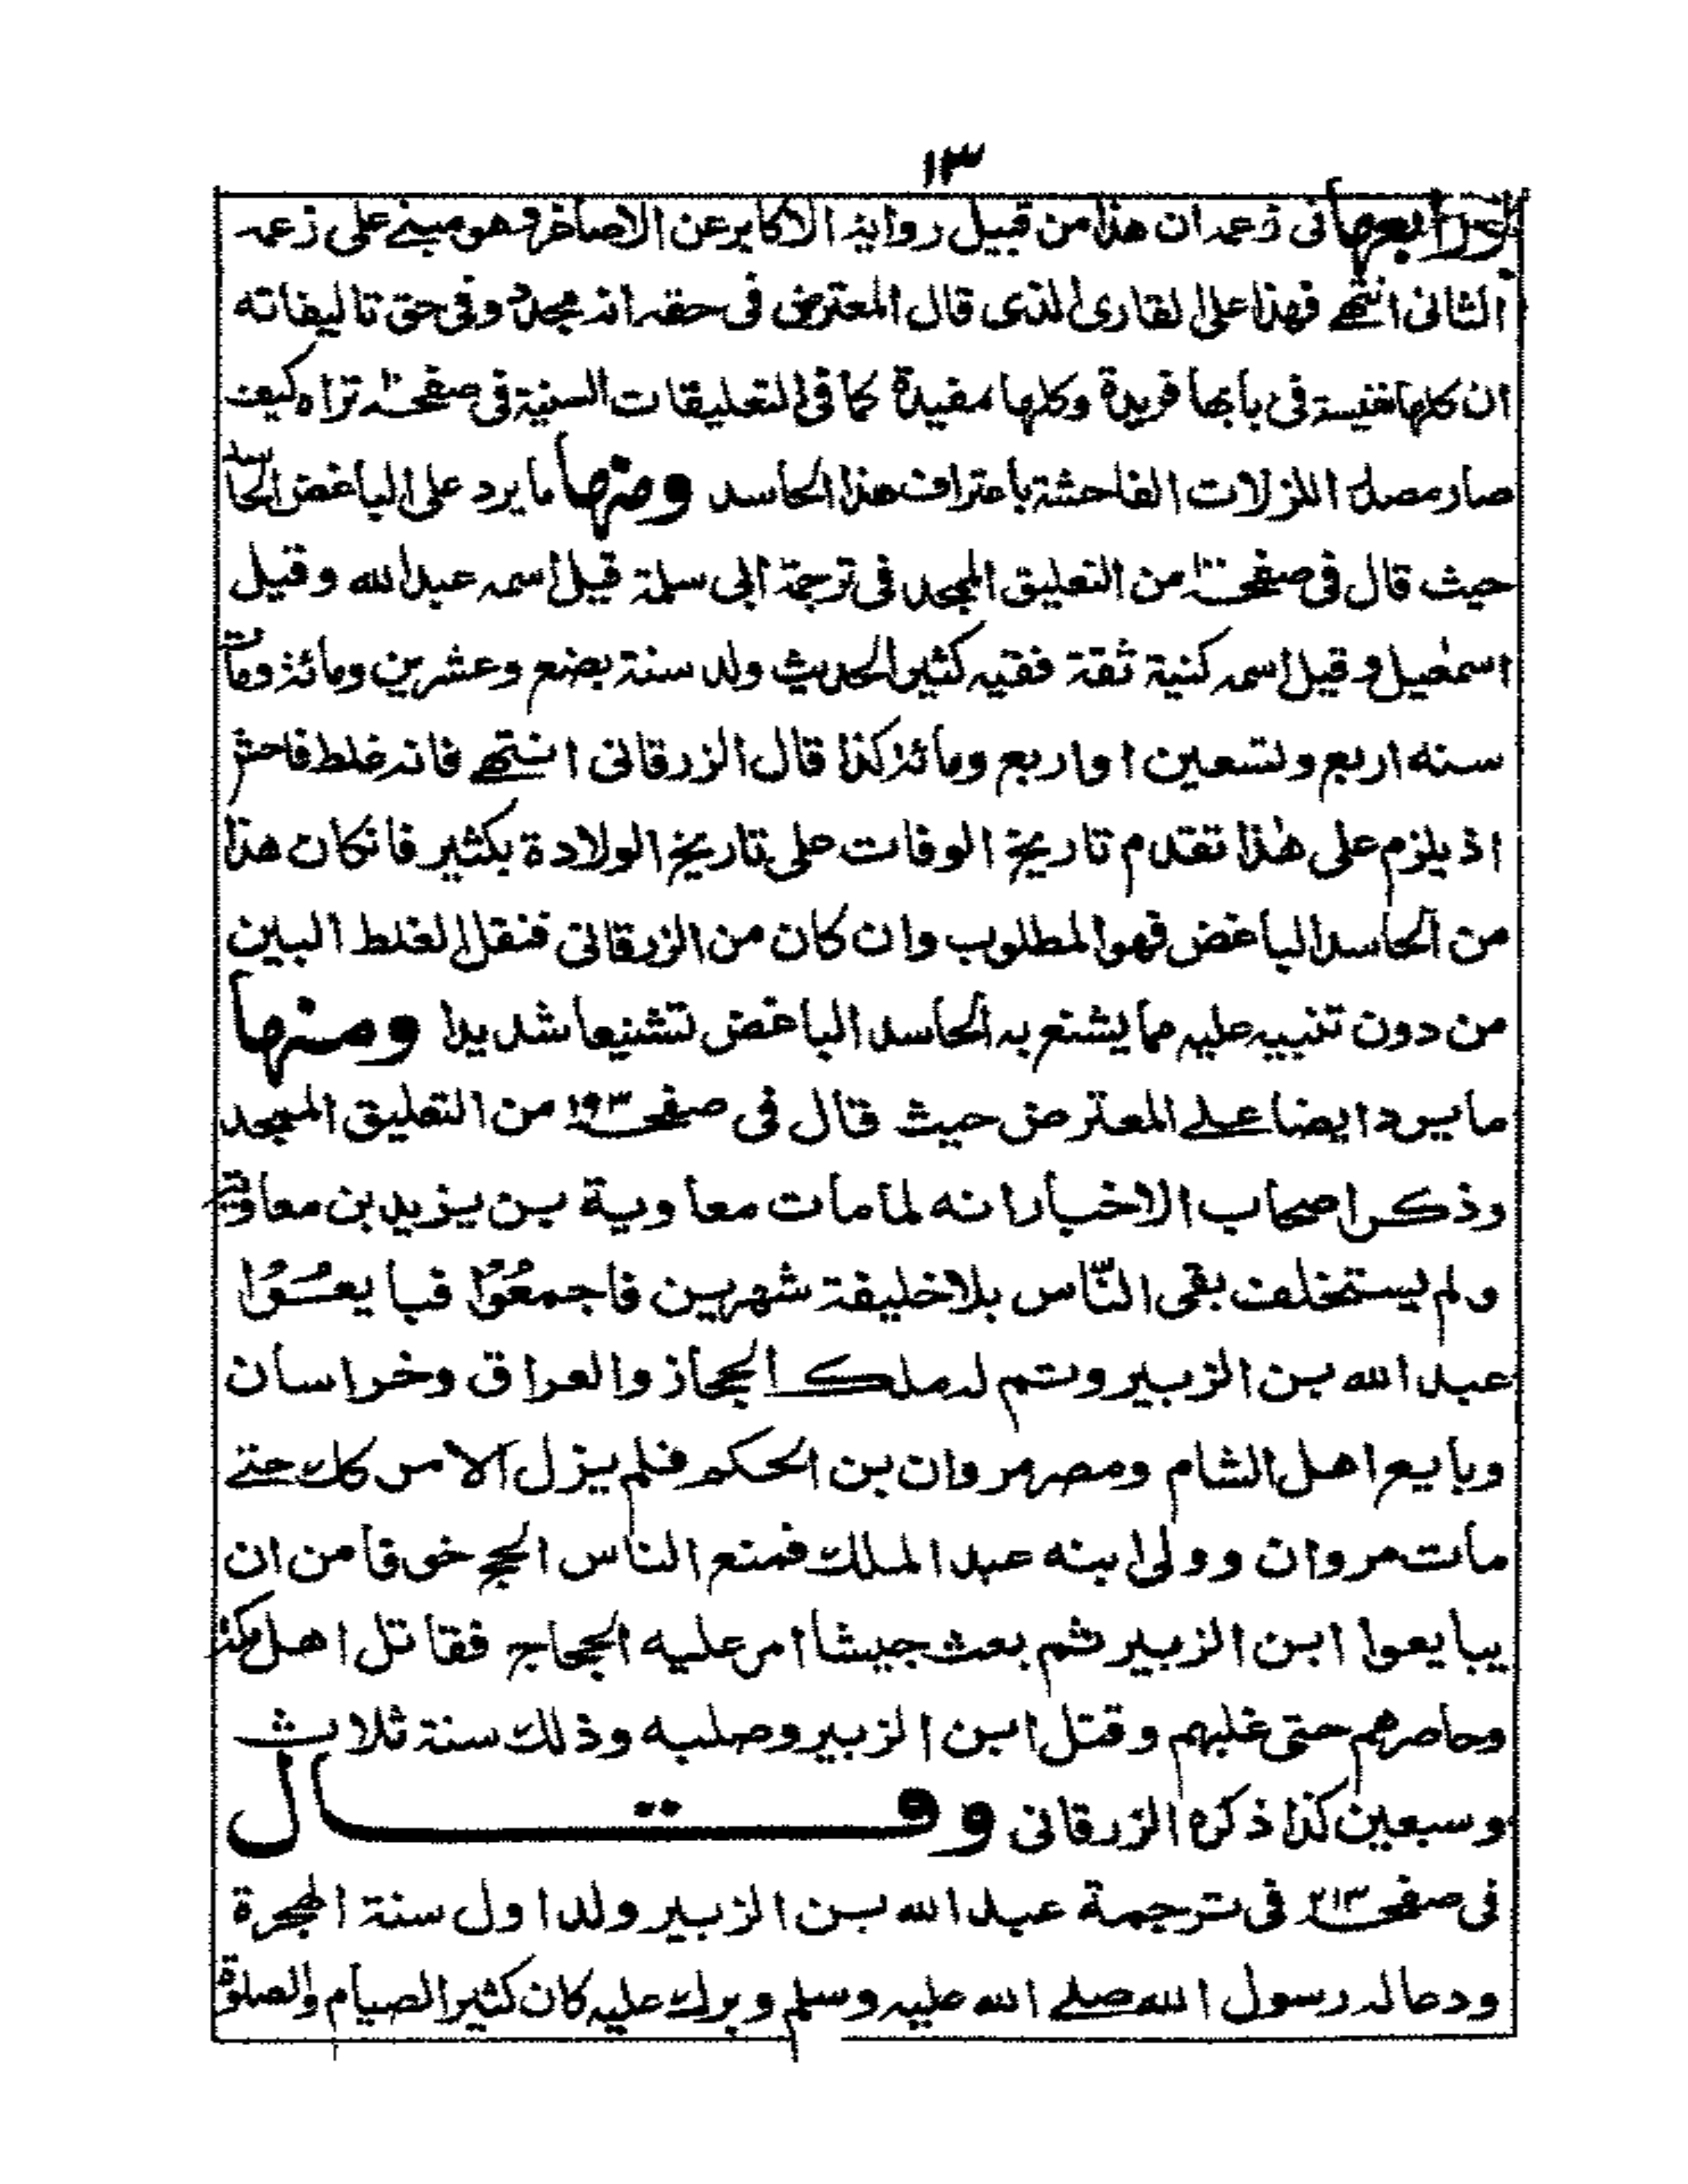 ١٣
ورابعها فى زعمه ان هذا من قبيل رواية الاكابر عن الاصاغر وهو مبنے على زعمه
الثانى انتهے فهذا على القارى الذى قال المعترض فى حقه انه مجدد وفى حق تاليفاته
ان كلها نفيسة فى بابها فريدة وكلها مفيدة كما فى التعليقات السنية فى صفحة تراه كيف
صار مصدر الزلات الفاحشة باعتراف هذا الحاسد ومنها ما يرد على الباغض الحاسد
حيث قال فى صفحة من التعليق الممجد فى ترجمة ابى سلمة قيل اسمه عبد الله وقيل
اسمعيل وقيل اسمه كنية ثقة فقيه كثير الحديث ولد سنة بضع وعشرين ومائة ومات
سنه اربع وتسعين او اربع ومائة كذا قال الزرقانى انتهے فانه غلط فاحش
اذ يلزم على هذا تقدم تاريخ الوفات على تاريخ الولادة بكثير فانكان هذا
من الحاسد الباغض فهو المطلوب وان كان من الزرقانى فنقل الغلط البين
من دون تنبيه عليه مما يشنع به الحاسد الباغض تشنيعا شديدا ومنها
ما يرد ايضا علے المعترض حيث قال فى صفحة ١٩٣ من التعليق الممجد
وذكر اصحاب الاخبار انه لما مات معاوية بن يزيد بن معاوية
ولم يستخلف بقى النّاس بلا خليفة شهرين فاجمعُوْا فبايعُوْا
عبد الله بن الزبير وتم له ملك الحجاز والعراق وخراسان
وبايع اهل الشام ومصر مروان بن الحكم فلم يزل الامر كك حتے
مات مروان وولى ابنه عبد الملك فمنع الناس الحج خوفا من ان
يبايعوا ابن الزبير ثم بعث جيشا امر عليه الحجاج فقاتل اهل مكة
وحاصرهم حتى غلبهم وقتل ابن الزبير وصلبه وذلك سنة ثلاث
وسبعين كذا ذكره الزرقانى وقـــال
فى صفحة ٢١٣ فى ترجمة عبد الله بن الزبير ولد اول سنة الهجرة
ودعا له رسول الله صلے الله عليه وسلم وبرك عليه كان كثير الصيام والصلوة